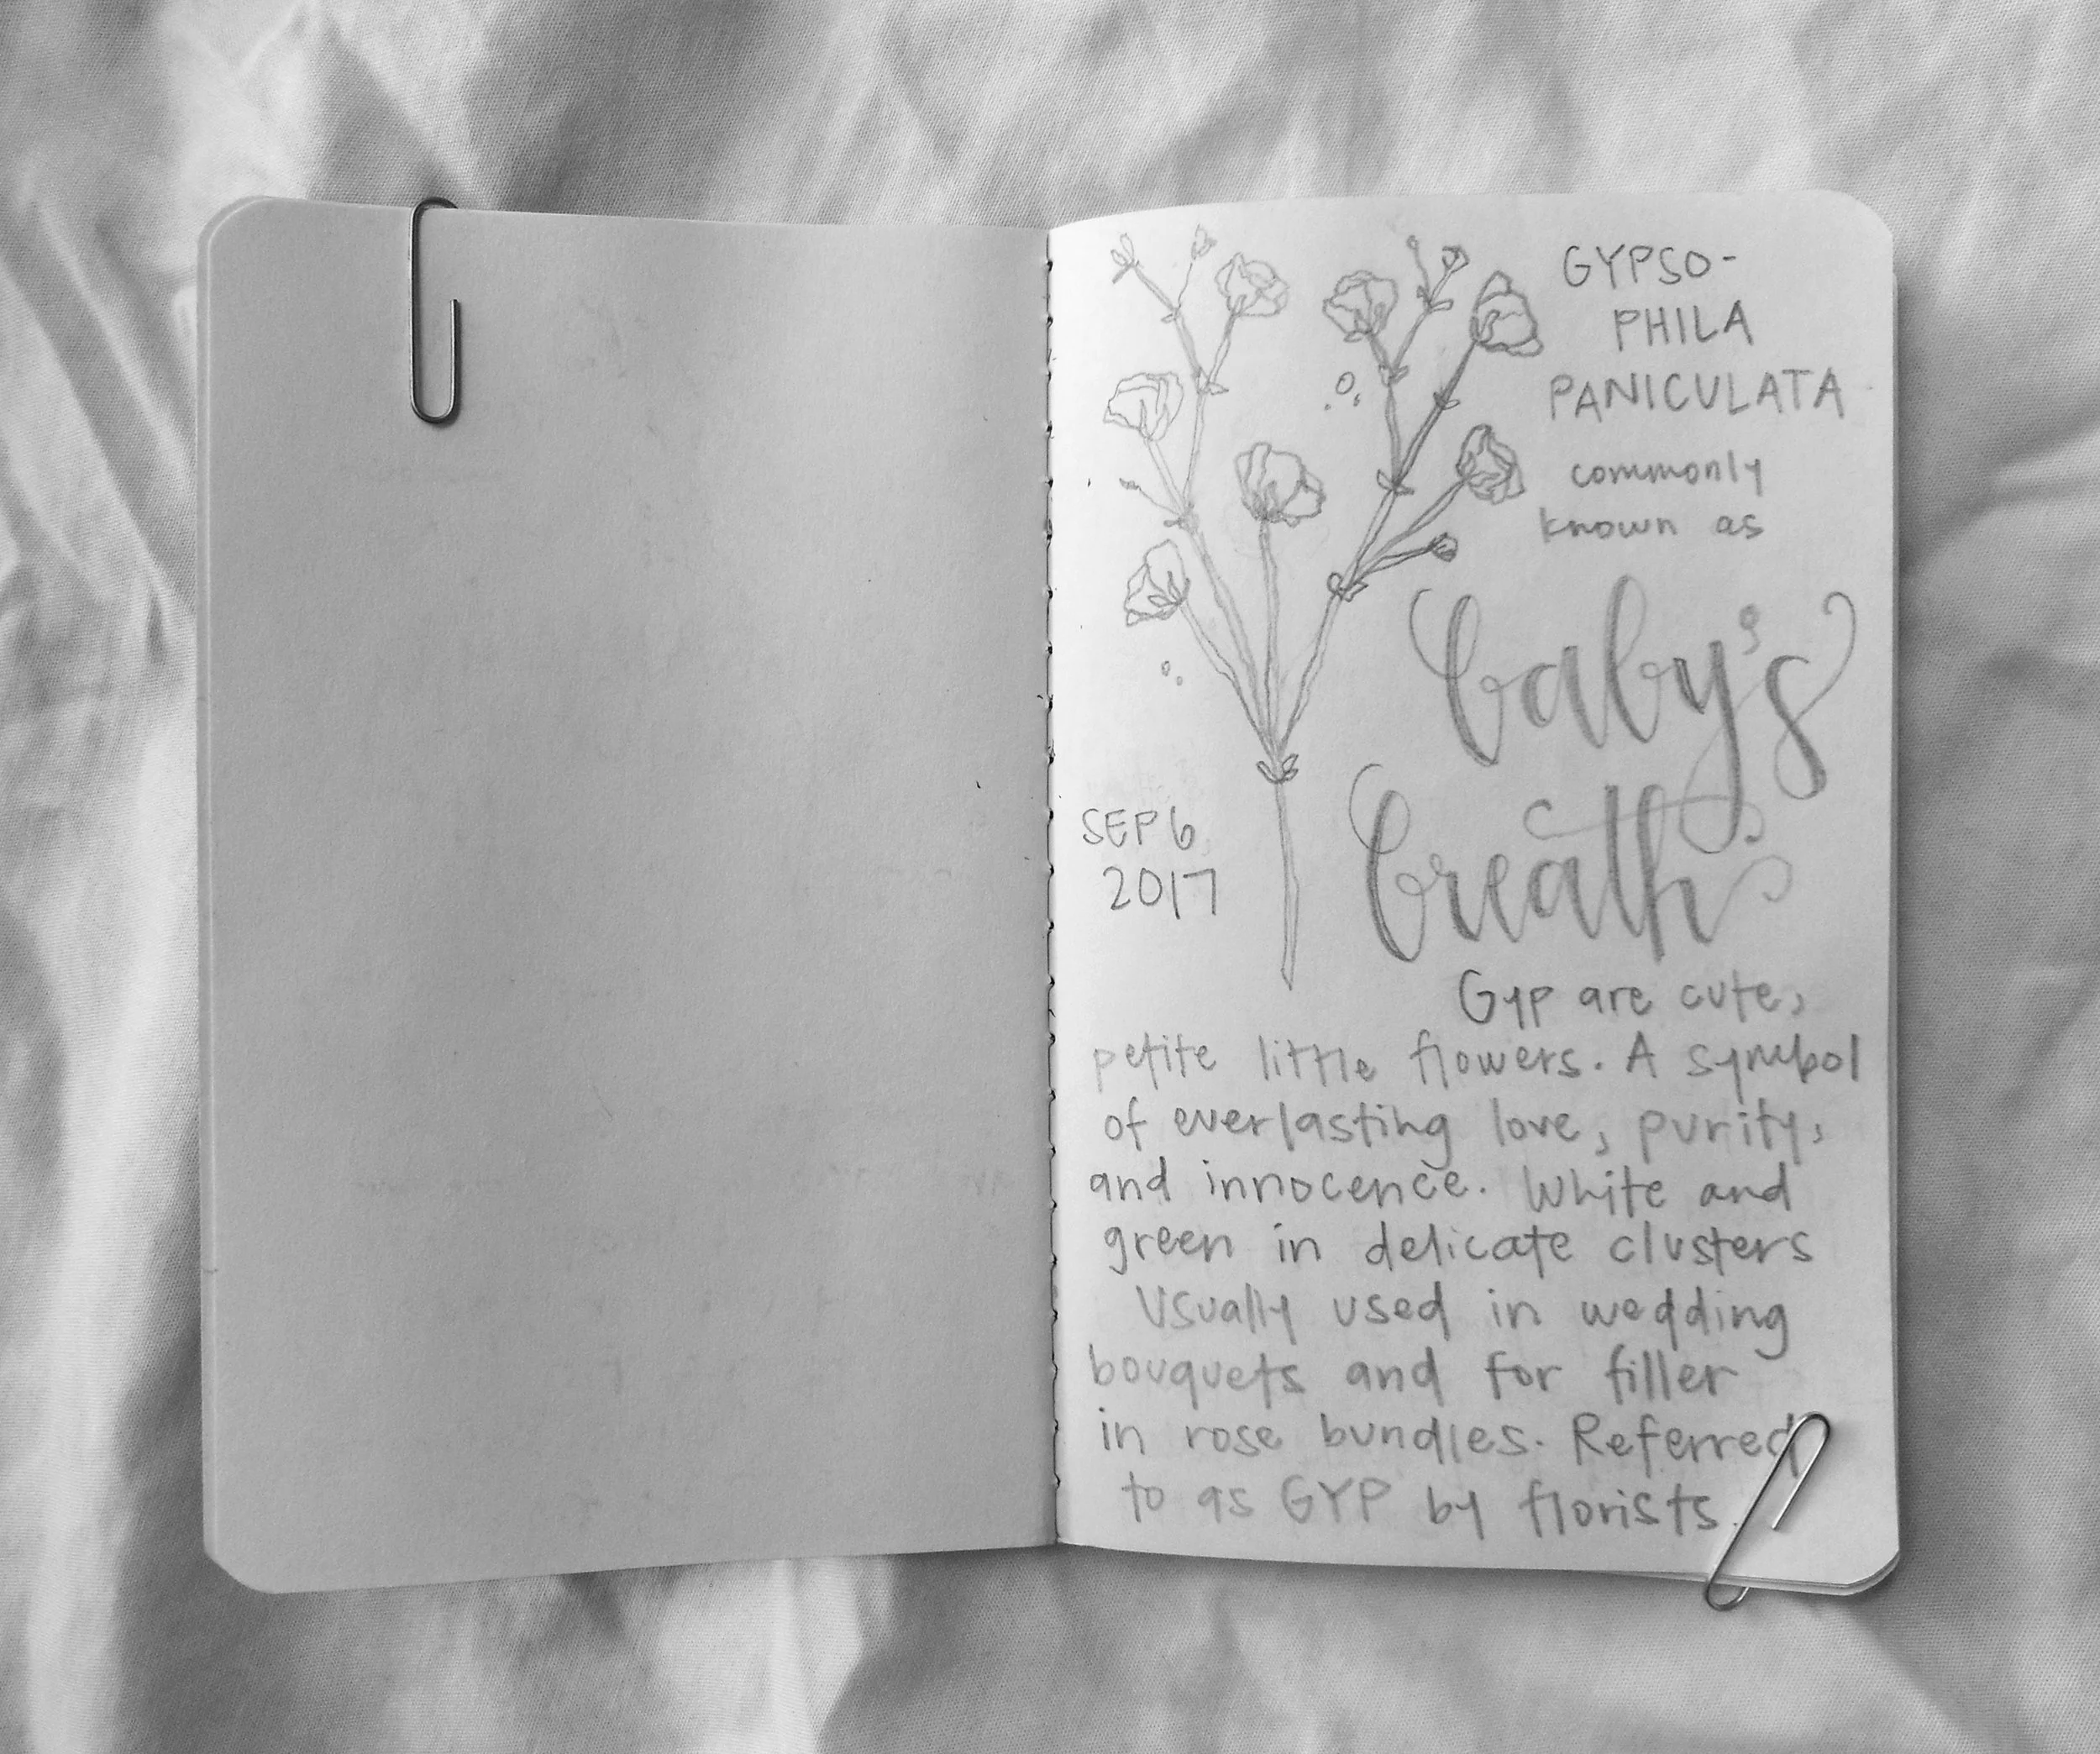 GYPSO-
PHILA
PANICULATA
commonly
known as
baby's
breath
SEP 6
2017
Gyp are cute,
petite little flowers. A symbol
of everlasting love, purity,
and innocence. White and
green in delicate clusters
Usually used in wedding
bouquets and for filler
in rose bundles. Referred
to as GYP by florists.